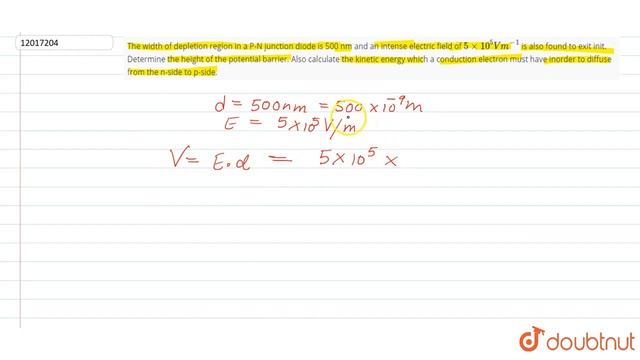 12017204
The width of depletion region in a P-N junction diode is 500 nm and an intense electric field of 5 × 10⁵Vm⁻¹ is also found to exit init.
Determine the height of the potential barrier. Also calculate the kinetic energy which a conduction electron must have inorder to diffuse
from the n-side to p-side.
d = 500nm = 500 × 10⁻⁹m
E = 5×10⁵V/m
V = E.d = 5×10⁵ ×
doubtnut